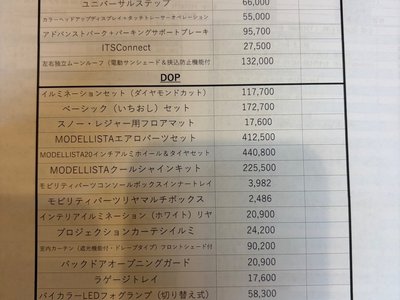 ユニバーサルステップ 66,000
カラーヘッドアップディスプレイ+タッチトレーサーオペレーション 55,000
アドバンストパーク+パーキングサポートブレーキ 95,700
ITSConnect 27,500
左右独立ムーンルーフ(電動サンシェード&挟込防止機能付 132,000
DOP
イルミネーションセット(ダイヤモンドカット) 117,700
ベーシック(いちおし)セット 172,700
スノー・レジャー用フロアマット 17,600
MODELLISTAエアロパーツセット 412,500
MODELLISTA20インチアルミホイール&タイヤセット 440,800
MODELLISTAクールシャインキット 225,500
モビリティパーツコンソールボックスインナートレイ 3,982
モビリティパーツリヤマルチボックス 2,486
インテリアイルミネーション(ホワイト)リヤ 20,900
プロジェクションカーテシイルミ 24,200
室内カーテン(遮光機能付・ドレープタイプ)フロントシェード付 90,200
バックドアオープニングガード 20,900
ラゲージトレイ 17,600
バイカラーLEDフォグランプ(切り替え式) 58,300